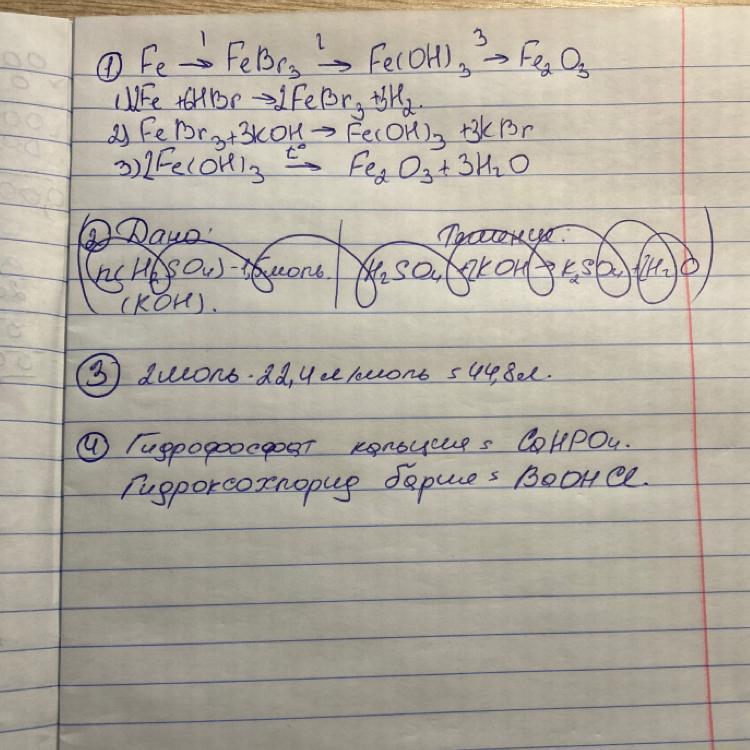 ① Fe →¹ FeBr₃ →² Fe(OH)₃ →³ Fe₂O₃
1) 2Fe + 6HBr → 2FeBr₃ + 3H₂.
2) FeBr₃ + 3KOH → Fe(OH)₃ + 3KBr
3) 2Fe(OH)₃ →t° Fe₂O₃ + 3H₂O
② Дано: Решение:
(H₂SO₄) - моль. H₂SO₄ + 2KOH → K₂SO₄ + 2H₂O
(KOH).
③ 2моль · 22,4 л/моль = 44,8л.
④ Гидрофосфат кальция = CaHPO₄.
Гидроксохлорид бария = BaOHCl.